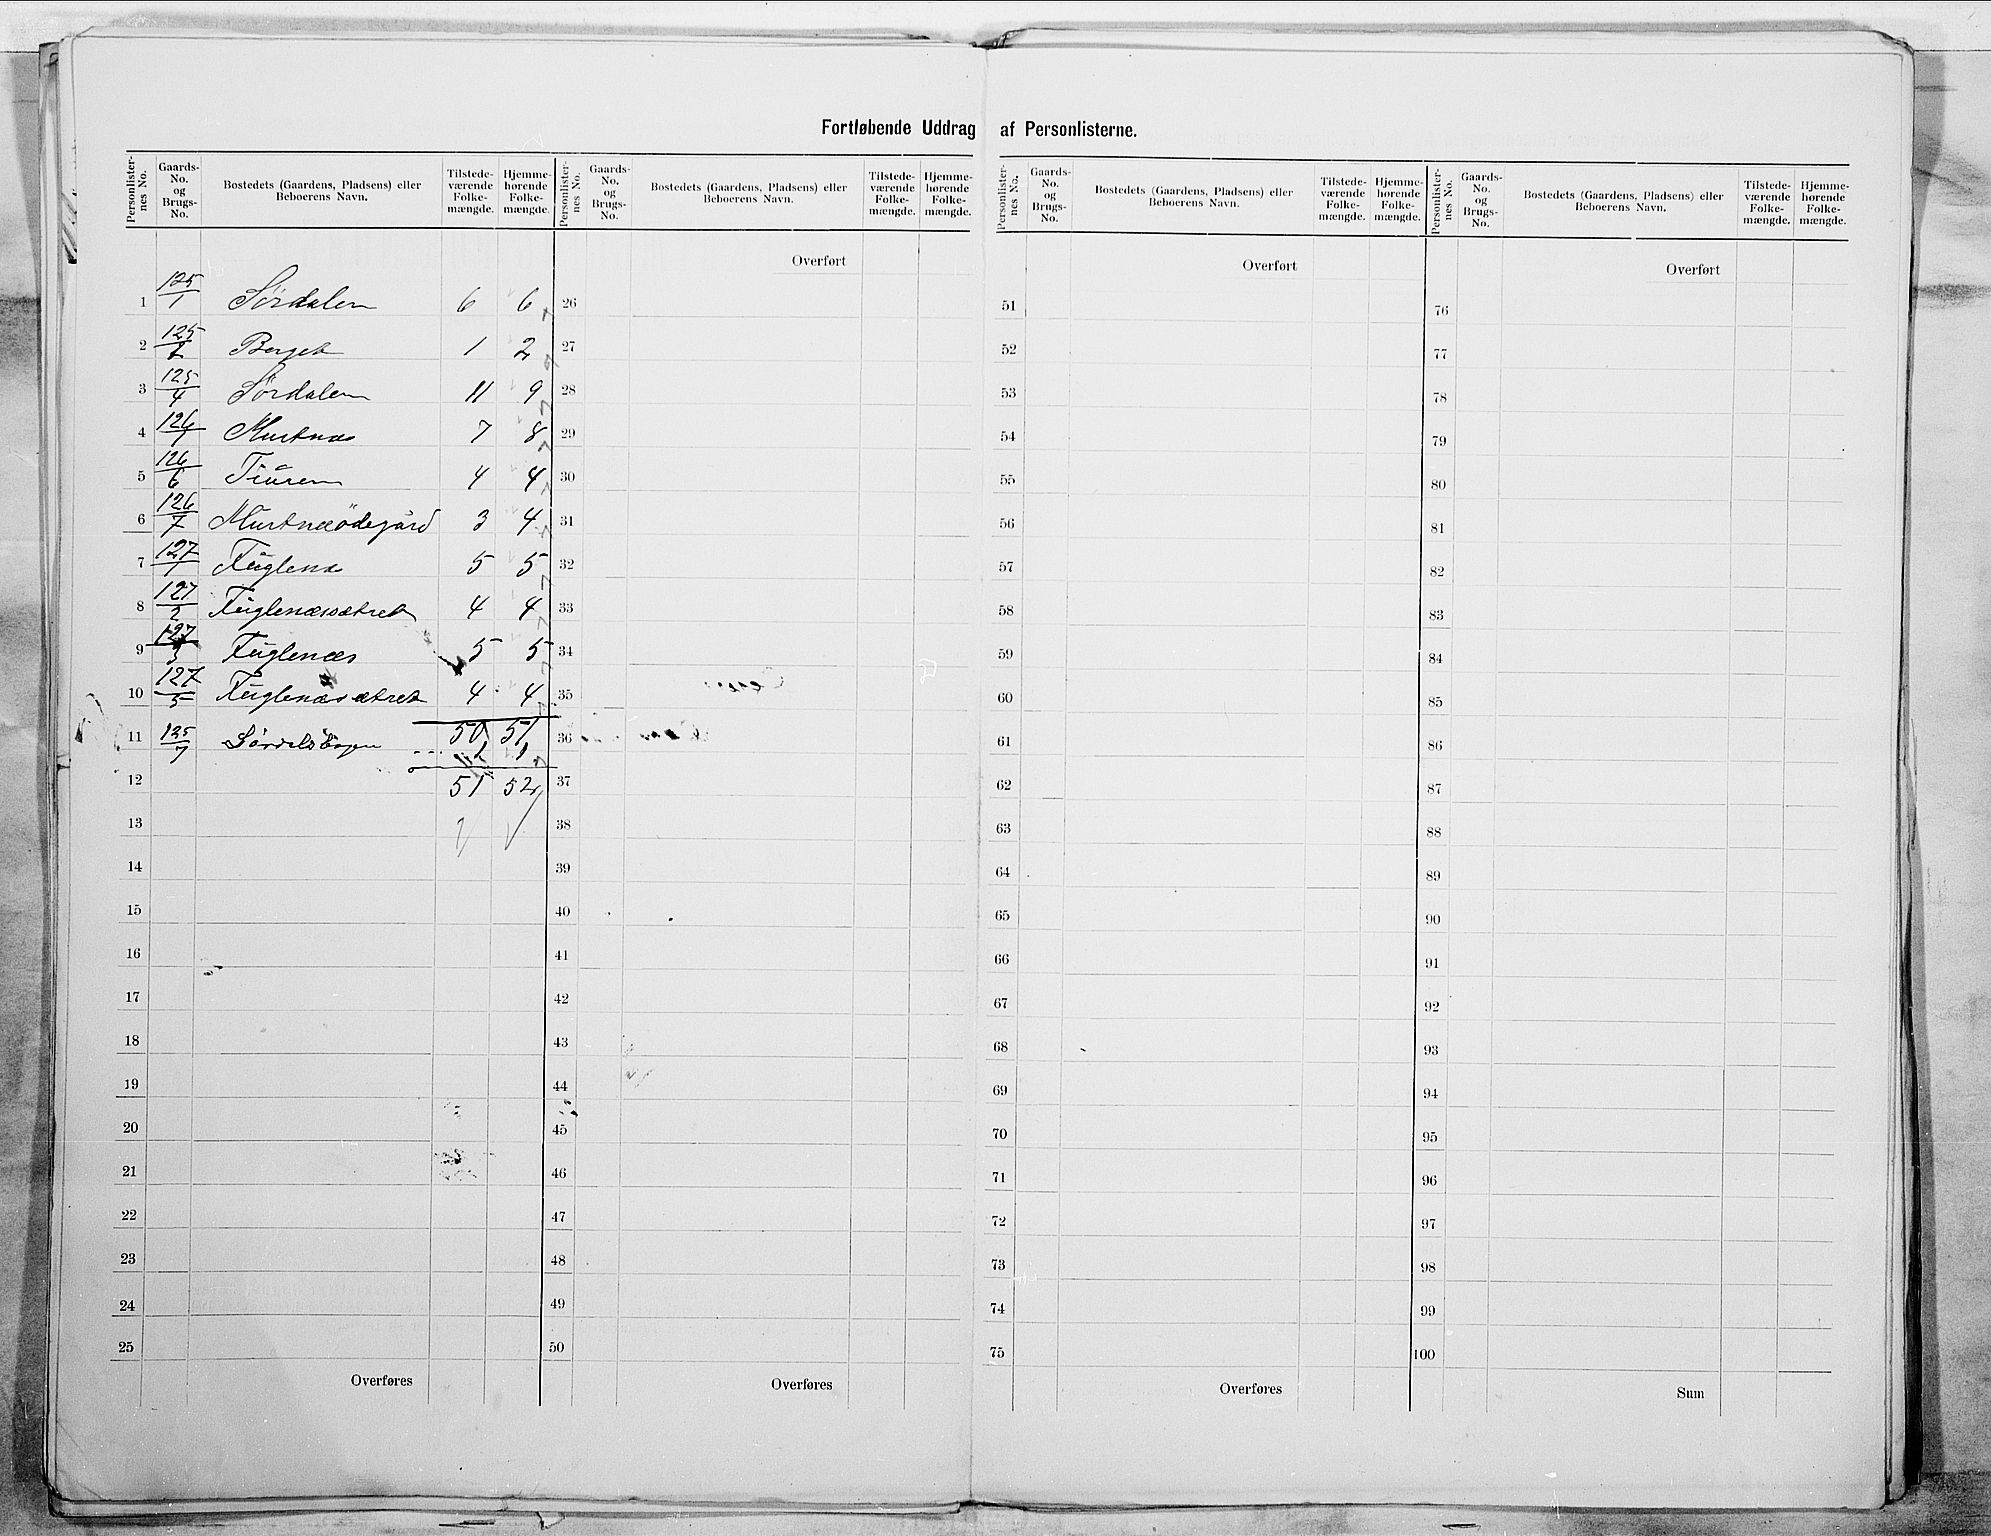 Fortløbende Uddrag af Personlisterne.
Personlisternes No. | Gaards-No. og Brugs-No. | Bostedets (Gaardens, Pladsens) eller Beboerens Navn. | Tilstedeværende Folkemængde. | Hjemmehørende Folkemængde.
1 125/1 Sørdalen 6 6
2 125/2 Berget 1 2
3 125/4 Sørdalen 11 9
4 126/1 Murtnæs 7 8
5 126/6 4 4
6 126/7 Murtnæsödegård 3 4
7 127/1 Fuglenæs 5 5
8 127/2 Fuglenæssætret 4 4
9 127/3 Fuglenæs 5 5
10 127/5 Fuglenæssætret 4 4
50 51
11 125/7 1 1
12 51 52
13
14
15
16
17
18
19
20
21
22
23
24
25
Overføres
Personlisternes No. | Gaards-No. og Brugs-No. | Bostedets (Gaardens, Pladsens) eller Beboerens Navn. | Tilstedeværende Folkemængde. | Hjemmehørende Folkemængde.
Overført
26
27
28
29
30
31
32
33
34
35
36
37
38
39
40
41
42
43
44
45
46
47
48
49
50
Overføres
Personlisternes No. | Gaards-No. og Brugs-No. | Bostedets (Gaardens, Pladsens) eller Beboerens Navn. | Tilstedeværende Folkemængde. | Hjemmehørende Folkemængde.
Overført
51
52
53
54
55
56
57
58
59
60
61
62
63
64
65
66
67
68
69
70
71
72
73
74
75
Overføres
Personlisternes No. | Gaards-No. og Brugs-No. | Bostedets (Gaardens, Pladsens) eller Beboerens Navn. | Tilstedeværende Folkemængde. | Hjemmehørende Folkemængde.
Overført
76
77
78
79
80
81
82
83
84
85
86
87
88
89
90
91
92
93
94
95
96
97
98
99
100
Sum